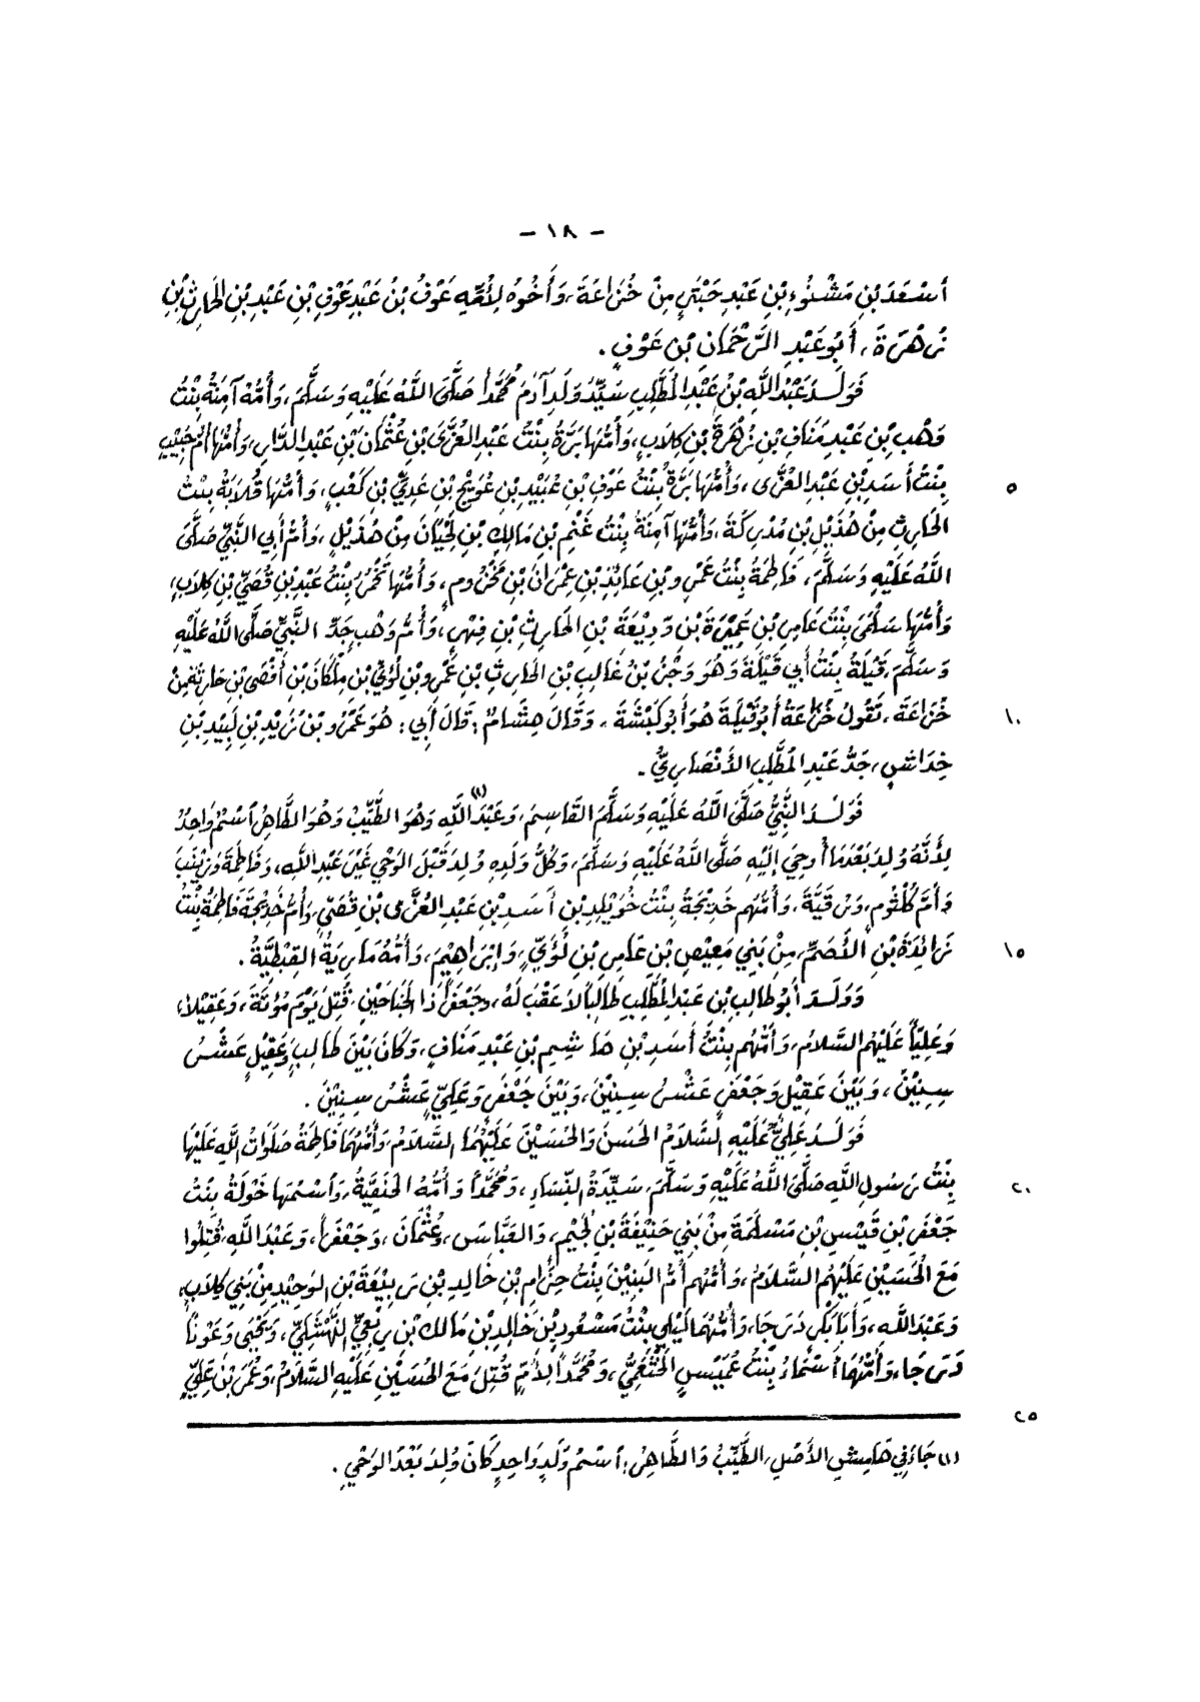 - ١٨ -
أَسْعَدَ بْنِ مَشْنُوءِ بْنِ عَبْدِ حَبْتَرٍ مِنْ خُزَاعَةَ، وَأَخُوهُ لِأُمِّهِ عَوْفُ بْنُ عَبْدِ عَوْفِ بْنِ عَبْدِ بْنِ الحَارِثِ بْنِ
زُهْرَةَ، أَبُو عَبْدِ الرَّحْمَانِ بْنِ عَوْفٍ.
فَوَلَدَ عَبْدُ اللَّهِ بْنُ عَبْدِ المُطَّلِبِ سَيِّدَ وَلَدِ آدَمَ مُحَمَّداً صَلَّى اللَّهُ عَلَيْهِ وَسَلَّمَ، وَأُمُّهُ آمِنَةُ بِنْتُ
وَهْبِ بْنِ عَبْدِ مَنَافِ بْنِ زُهْرَةَ بْنِ كِلَابٍ، وَأُمُّهَا بَرَّةُ بِنْتُ عَبْدِ العُزَّى بْنِ عُثْمَانَ بْنِ عَبْدِ الدَّارِ، وَأُمُّهَا أُمُّ حَبِيْبٍ
بِنْتُ أَسَدِ بْنِ عَبْدِ العُزَّى، وَأُمُّهَا بَرَّةُ بِنْتُ عَوْفِ بْنِ عُبَيْدِ بْنِ عُوَيْجِ بْنِ عَدِيِّ بْنِ كَعْبٍ، وَأُمُّهَا قُلَابَةُ بِنْتُ
٥
الحَارِثِ مِنْ هُذَيْلِ بْنِ مُدْرِكَةَ، وَأُمُّهَا آمِنَةُ بِنْتُ غَنْمِ بْنِ مَالِكِ بْنِ لِحْيَانَ مِنْ هُذَيْلٍ، وَأُمُّ أَبِي النَّبِيِّ صَلَّى
اللَّهُ عَلَيْهِ وَسَلَّمَ، فَاطِمَةُ بِنْتُ عَمْرِو بْنِ عَائِذِ بْنِ عِمْرَانَ بْنِ مَخْزُومٍ، وَأُمُّهَا تَخْمُرُ بِنْتُ عَبْدِ بْنِ قُصَيِّ بْنِ كِلَابٍ،
وَأُمُّهَا سَلْمَى بِنْتُ عَامِرِ بْنِ عَمِيْرَةَ بْنِ وَدِيْعَةَ بْنِ الحَارِثِ بْنِ فِهْرٍ، وَأُمُّ وَهْبٍ جَدِّ النَّبِيِّ صَلَّى اللَّهُ عَلَيْهِ
وَسَلَّمَ، قَيْلَةُ بِنْتُ أَبِي قَيْلَةَ وَهُوَ وَجْزُ بْنُ غَالِبِ بْنِ الحَارِثِ بْنِ عَمْرِو بْنِ لُؤَيِّ بْنِ مِلْكَانَ بْنِ أَفْصَى بْنِ حَارِثَةَ مِنْ
خُزَاعَةَ، تَقُولُ خُزَاعَةُ أَبُو قَيْلَةَ هُوَ أَبُو كَبْشَةَ، وَقَالَ هِشَامٌ: قَالَ أَبِي: هُوَ عَمْرُو بْنُ زَيْدِ بْنِ لَبِيْدِ بْنِ
١٠
خِدَاشٍ، جَدُّ عَبْدِ المُطَّلِبِ الأَنْصَارِيُّ.
فَوَلَدَ النَّبِيُّ صَلَّى اللَّهُ عَلَيْهِ وَسَلَّمَ القَاسِمَ، وَعَبْدَ(١) اللَّهِ وَهُوَ الطَّيِّبُ وَهُوَ الطَّاهِرُ أَسْمٌ وَاحِدٌ
لِأَنَّهُ وُلِدَ بَعْدَمَا أُوحِيَ إِلَيْهِ صَلَّى اللَّهُ عَلَيْهِ وَسَلَّمَ، وَكُلُّ وَلَدِهِ وُلِدَ قَبْلَ الوَحْيِ غَيْرَ عَبْدِ اللَّهِ، وَفَاطِمَةَ وَزَيْنَبَ
وَأُمَّ كُلْثُومٍ، وَرُقَيَّةَ، وَأُمُّهُم خَدِيْجَةُ بِنْتُ خُوَيْلِدِ بْنِ أَسَدِ بْنِ عَبْدِ العُزَّى بْنِ قُصَيٍّ، وَأُمُّ خَدِيْجَةَ فَاطِمَةُ بِنْتُ
زَائِدَةَ بْنِ الأَصَمِّ، مِنْ بَنِي مَعِيْصِ بْنِ عَامِرِ بْنِ لُؤَيٍّ، وَإِبْرَاهِيْمَ، وَأُمُّهُ مَارِيَةُ القِبْطِيَّةُ.
١٥
وَوَلَدَ أَبُو طَالِبِ بْنِ عَبْدِ المُطَّلِبِ طَالِباً لَا عَقْبَ لَهُ، وَجَعْفَراً ذَا الجَنَاحَيْنِ، قُتِلَ يَوْمَ مُؤْتَةَ، وَعَقِيْلاً،
وَعَلِيّاً عَلَيْهِم السَّلَامُ، وَأُمُّهُم بِنْتُ أَسَدِ بْنِ هَاشِمِ بْنِ عَبْدِ مَنَافٍ، وَكَانَ بَيْنَ طَالِبٍ وَعَقِيْلٍ عَشْرُ
سِنِيْنَ، وَبَيْنَ عَقِيْلٍ وَجَعْفَرٍ عَشْرُ سِنِيْنَ، وَبَيْنَ جَعْفَرٍ وَعَلِيٍّ عَشْرُ سِنِيْنَ.
فَوَلَدَ عَلِيٌّ عَلَيْهِ السَّلَامُ الحَسَنَ وَالحُسَيْنَ عَلَيْهُمَا السَّلَامُ، وَأُمُّهُمَا فَاطِمَةُ صَلَوَاتُ اللَّهِ عَلَيْهَا
بِنْتُ رَسُولِ اللَّهِ صَلَّى اللَّهُ عَلَيْهِ وَسَلَّمَ، سَيِّدَةُ النِّسَاءِ، وَمُحَمَّداً وَأُمُّهُ الحَنَفِيَّةُ، وَأَسْمُهَا خَوْلَةُ بِنْتُ
٢٠
جَعْفَرِ بْنِ قَيْسِ بْنِ مَسْلَمَةَ مِنْ بَنِي حَنِيْفَةَ بْنِ لُجَيْمٍ، وَالعَبَّاسَ، وَعُثْمَانَ، وَجَعْفَراً، وَعَبْدَ اللَّهِ، قُتِلُوا
مَعَ الحُسَيْنِ عَلَيْهُم السَّلَامُ، وَأُمُّهُم أُمُّ البَنِيْنَ بِنْتُ حِزَامِ بْنِ خَالِدِ بْنِ رَبِيْعَةَ بْنِ الوَحِيْدِ مِنْ بَنِي كِلَابٍ،
وَعَبْدَ اللَّهِ، وَأَبَا بَكْرٍ دَرَجَا، وَأُمُّهُمَا لَيْلَى بِنْتُ مَسْعُودِ بْنِ خَالِدِ بْنِ مَالِكِ بْنِ رِبْعِيٍّ النَّهْشَلِيِّ، وَيَحْيَى وَعَوْناً
دَرَجَا، وَأُمُّهُمَا أَسْمَاءُ بِنْتُ عُمَيْسٍ الخَثْعَمِيِّ، وَمُحَمَّداً لِأُمٍّ قُتِلَ مَعَ الحُسَيْنِ عَلَيْهِ السَّلَامُ، وَعُمَرَ بْنَ عَلِيٍّ
٢٥
(١) جَاءَ فِي هَامِشِ الأَصْلِ، الطَّيِّبُ وَالطَّاهِرُ: أَسْمُ وَلَدٍ وَاحِدٍ كَانَ وُلِدَ بَعْدَ الوَحْيِ.